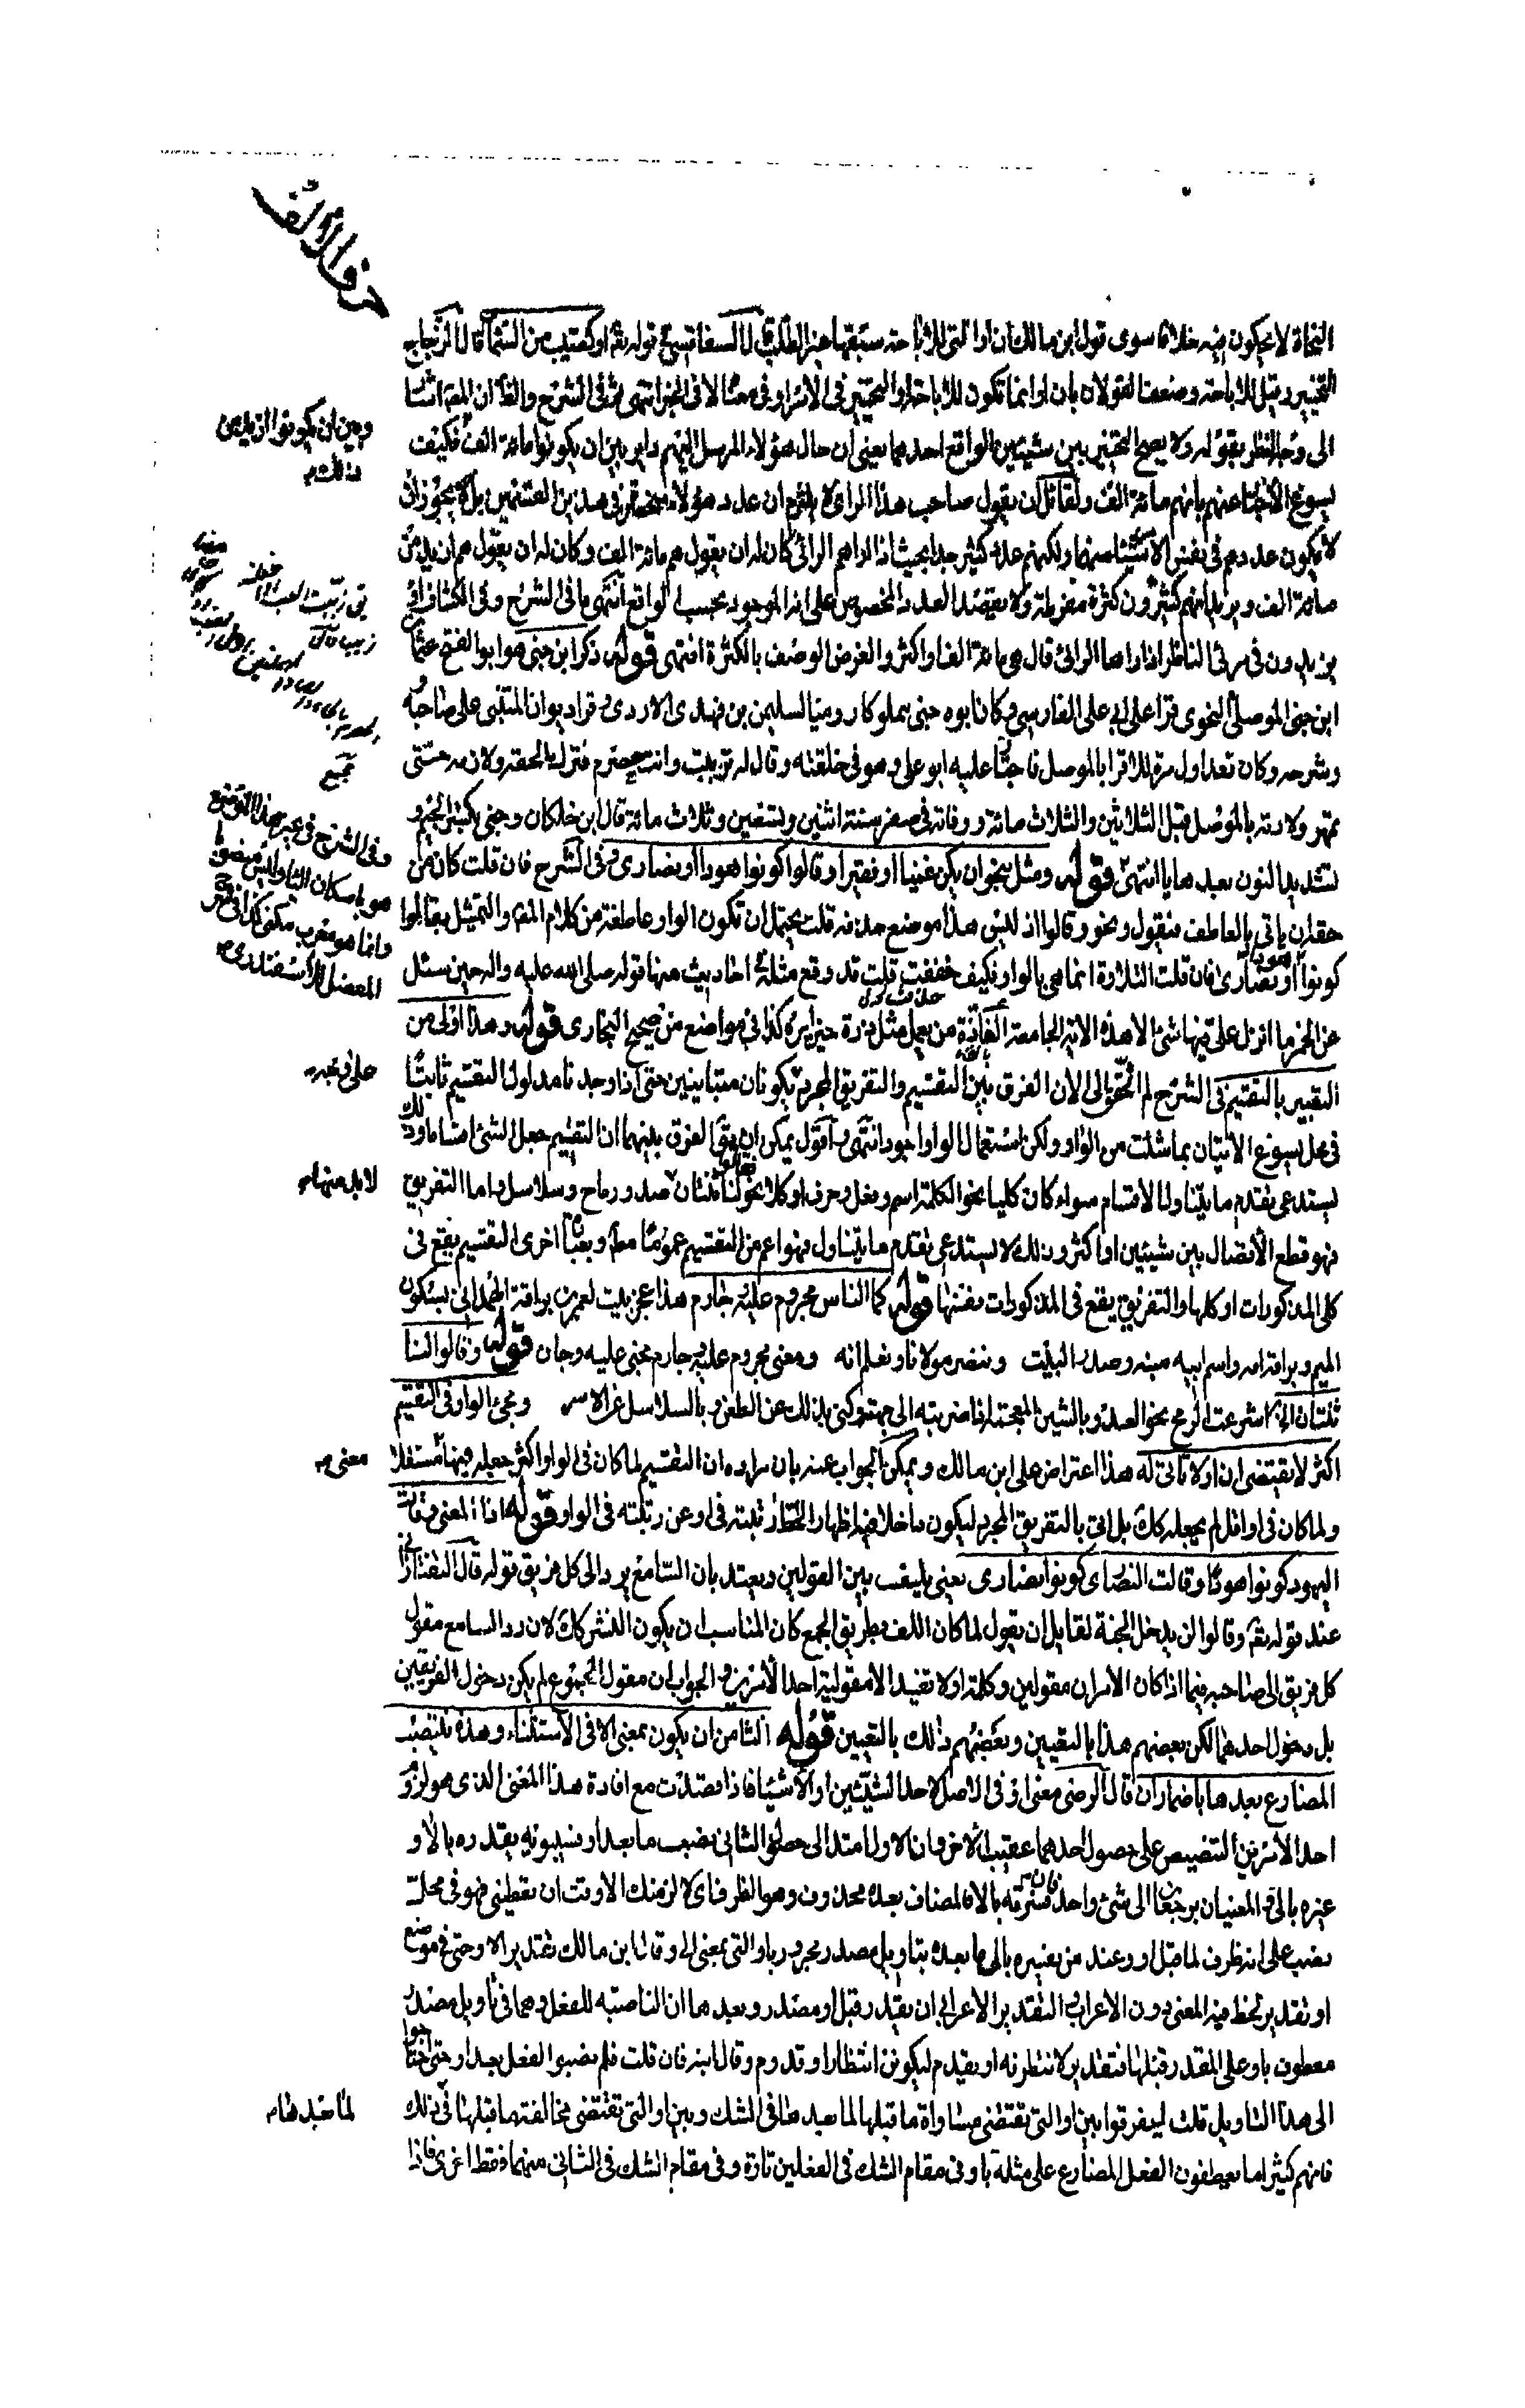 حرف الالف
النحاة لا يحكون فيه خلافا سوى قول ابن مالك ان او التى للاباحة سبقها حيز الطلب قال السفاقسى فى قوله تعالى او كصيب من السماء قال الزجاج
للتخيير وقيل للاباحة وضعف القولان بان او انما تكون للاباحة او التخيير فى الامر او فى معناه لا فى الخبر انتهى ثم فى الشرح والظ ان المص اشار
الى وجه النظر بقوله ولا يصح التخيير بين شيئين الواقع احدهما يعنى ان حال هؤلاء المرسل اليهم داير بين ان يكونوا مائة الف فكيف
وبين ان يكونوا ازيد من ذلك
يسوغ الاخبار عنهم بانهم مائة الف ولقائل ان يقول صاحب هذا الراى لا يلتزم ان عدد هؤلاء منحصر فى هذين القسمين بل يجوز ان
لا يكون عددهم فى نفس الامر شيئا منهما ولكنهم عدد كثير جدا بحيث اذا راهم الرائى كان له ان يقول هم مائة الف وكان له ان يقول هم ازيد من
مائة الف ويريد انهم كثيرون كثرة مفرطة ولا يقصد العدد المخصوص على انه الموجود بحسب الواقع انتهى ما فى الشرح وفى الكشاف او
يزيدون فى مرئى الناظر اذا راها الرائى قال هى مائة الف او اكثر والغرض الوصف بالكثرة انتهى قوله ذكر ابن جنى هو ابو الفتح عثمان
ابن جنى الموصلى النحوى قرا على ابى على الفارسى وكان ابوه جنى مملوكا روميا لسليمن بن فهد الازدى وقرا ديوان المتنبى على صاحبه
وشرحه وكان قعد اول مرة للاقرا بالموصل فاجتاز عليه ابو على وهو فى حلقته وقال له تزببت وانت حصرم فترك الحلقة ولازمه حتى
تمهر ولادته بالموصل قبل الثلاثين والثلاث مائة ووفاته فى صفر سنة اثنين وتسعين وثلاث مائة قال ابن خلكان وجنى بكسر الجيم و
تشديد النون بعدها يا انتهى قوله ومثل بنحو ان يكن غنيا او فقيرا وقالوا كونوا هودا او نصارى فى الشرح فان قلت كان من
حقه ان ياتى بالعاطف فيقول ونحو وقالوا اذ ليس هذا موضع حذفه قلت يحتمل ان تكون الواو عاطفة من كلام المص والتمثيل بقالوا
كونوا هودا او نصارى فان قلت التلاوة انما هى بالواو فكيف حذفت قلت قد وقع مثله فى احاديث منها قوله صلى الله عليه وآله حين سئل
عن الحمر ما انزل على فيها شئ الا هذه الاية الجامعة الفاذة من يعمل مثقال ذرة خيرا يره كذا فى مواضع من صحيح البخارى قوله وهذا اولى من
التعبير بالتقسيم فى الشرح لم اتحقق الى الان الفرق بين التقسيم والتفريق المجرد يكونان متباينين حتى اذا وجدنا مدلول التقسيم ثابتا
فى محل يسوغ الاتيان بما شئت من الواو ولكن استعمال الواو اجود انتهى واقول يمكن ان يق الفرق بينهما ان التقسيم جعل الشئ اقساما وذلك
يستدعى تقدم ما يتناول الاقسام سواء كان كليا نحو الكلمة اسم وفعل وحرف او كلا نحو فقالوا لنا ثنتان صدور رماح وسلاسل واما التفريق
لا بد منهما
فهو قطع الاتصال بين شيئين او اكثر وذلك لا يستدعى تقدم ما يتناول فهو اعم من التقسيم عموما مط وبعبارة اخرى التقسيم يقع فى
كلى المذكورات او كلها والتفريق يقع فى المذكورات نفسها قوله كما الناس مجروم عليه وجارم هذا عجز بيت لعمرو بن براقة الهمدانى بسكون
الميم وبراقة امه واسم ابيه منبه وصدر البيت وننصر مولانا ونعلم انه ومعنى مجروم عليه وجارم مجنى عليه وجان قوله وقالوا لنا
ثنتان الخ اشرعت الرمح نحو العدو بالشين المعجمة اذا صوبته الى جهته وكنى بذلك عن الطعن وبالسلاسل عن الاسر ومجئ الواو فى التقسيم
اكثر لا يقتضى ان او لا تاتى له هذا اعتراض على ابن مالك ويمكن الجواب عنه بان مراده ان التقسيم لما كان فى الواو اكثر جعله فيها مستقلا
معنى
ولما كان فى او اقل لم يجعله كك بل اتى بالتفريق المجرد ليكون داخلا فيه اظهارا لانحطاط رتبته فى او عن رتبته فى الواو قوله اذ المعنى وقالت
اليهود كونوا هودا وقالت النصارى كونوا نصارى يعنى يلف بين القولين ويعتد بان السامع يرد الى كل فريق قوله قال التفتازانى
عند قوله تعالى وقالوا لن يدخل الجنة لقايل ان يقول لما كان اللف بطريق الجمع كان المناسب ان يكون النشر كك لان رد السامع مقول
كل فريق الى صاحبه فيما اذا كان الامران مقولين وكلمة او لا تفيد الا مقولية احد الامرين والجواب ان مقول المجموع لم يكن دخول الفريقين
بل دخول احدهما لكن بعضهم هذا بالتعيين وبعضهم ذلك بالتعيين قوله الثامن ان يكون بمعنى الا فى الاستثناء وهذه ينتصب
المضارع بعدها باضمار ان قال الرضى معنى او فى الاصل لاحد الشيئين او الاشياء فاذا قصدت مع افادة هذا المعنى الذى هو لزوم
احد الامرين التنصيص على حصول احدهما عقيب الاخر وان الاول امتد الى حصول الثانى نصبت ما بعد او فسيبويه يقدره بالا و
غيره بالى والمعنيان يرجعان الى شئ واحد فان فسرته بالا فالمضاف بعده محذوف وهو الظرف اى لالزمنك الا وقت ان تعطينى فهو فى محل
نصب على انه ظرف لما قبل او وعند من يفسره بالى ما بعده بتاويل مصدر مجرور باو التى بمعنى الى وقال ابن مالك تقدير الا وحتى فى موضع
او تقدير لحظ فيه المعنى دون الاعراب والتقدير الاعرابى ان يقدر قبل او مصدر وبعدها ان الناصبة للفعل وهما فى تاويل مصدر
معطوف باو على المقدر قبلها فتقدير لانتظرنه او يقدم ليكونن انتظار او قدوم وقال ابنه فان قلت فلم نصبوا الفعل بعد او حتى احتاجوا
الى هذا التاويل قلت ليفرقوا بين او التى تقتضى مساواة ما قبلها لما بعدها فى الشك وبين او التى تقتضى مخالفة ما قبلها فى ذلك
لما بعدها
فانهم كثيرا ما يعطفون الفعل المضارع على مثله باو فى مقام الشك فى الفعلين تارة وفى مقام الشك فى الثانى منهما فقط اخرى فاذا